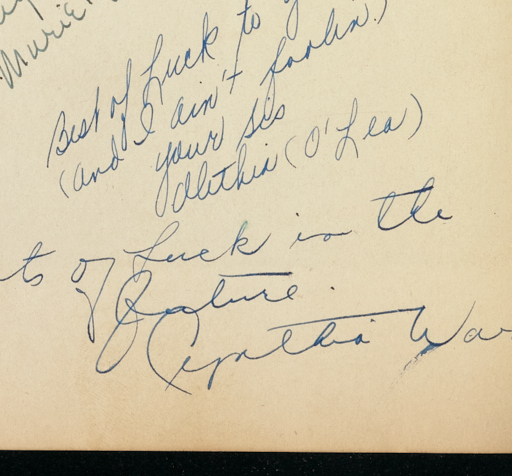 Marie
Best of Luck to
(and I ain't foolin.)
your sis
Alethia (O'Lea)
ts of Luck in the
Future.
Cynthia Wa